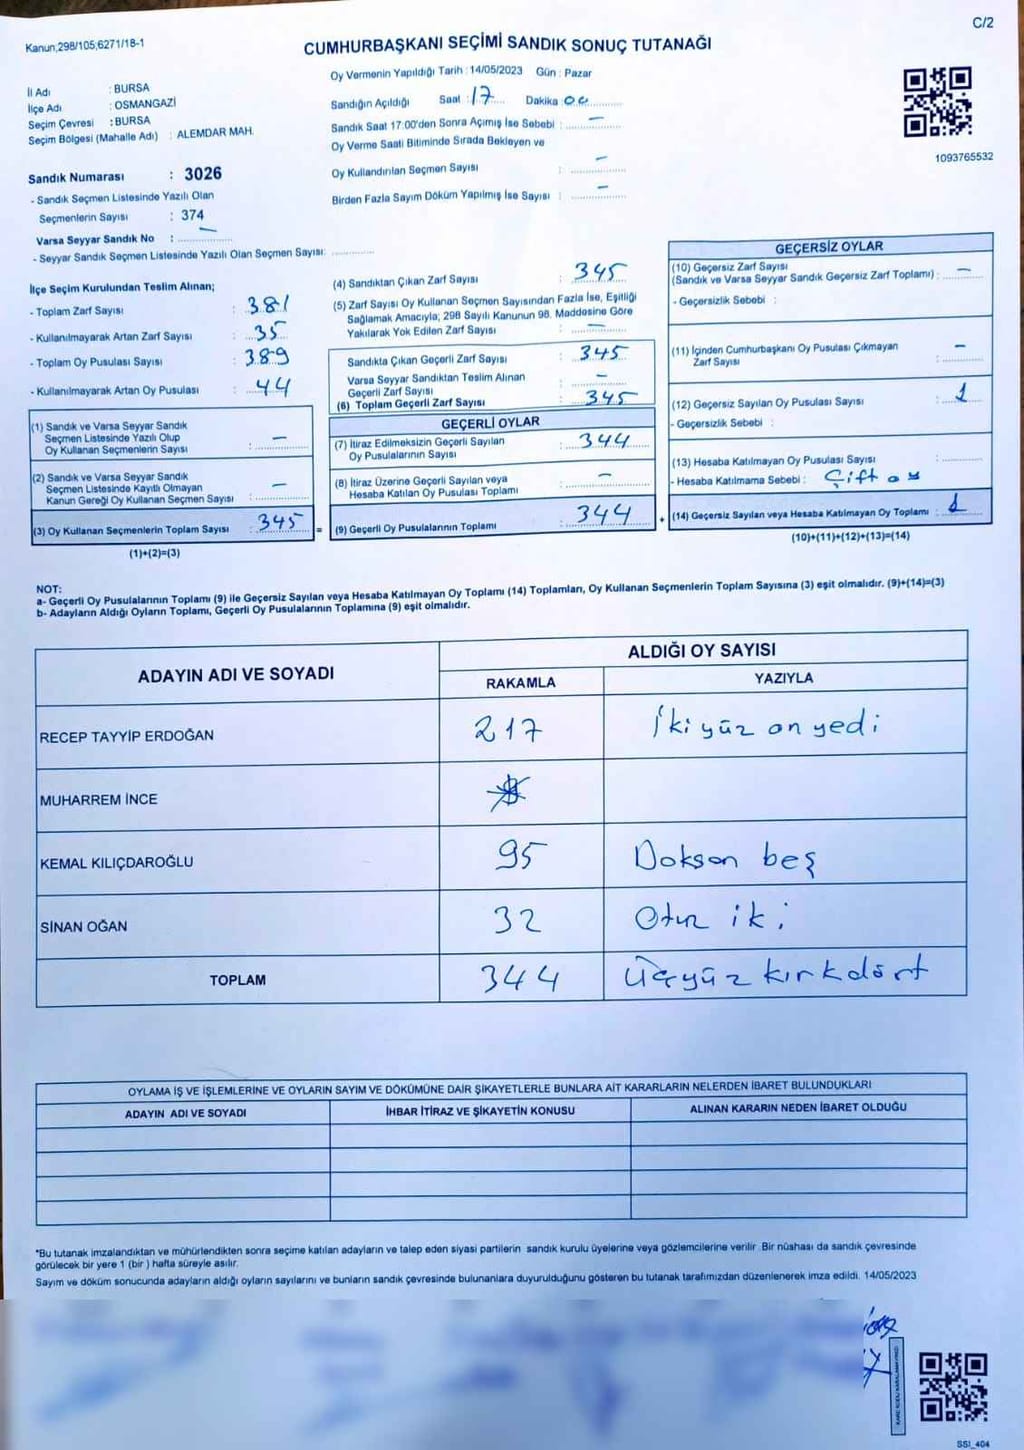 C/2
Kanun;298/105;6271/18-1
CUMHURBAŞKANI SEÇİMİ SANDIK SONUÇ TUTANAĞI
Oy Vermenin Yapıldığı Tarih : 14/05/2023 Gün : Pazar
İl Adı : BURSA
İlçe Adı : OSMANGAZİ
Seçim Çevresi : BURSA
Seçim Bölgesi (Mahalle Adı) : ALEMDAR MAH.
Sandığın Açıldığı Saat : 17 Dakika 00
Sandık Saat 17:00'den Sonra Açımış İse Sebebi : —
Oy Verme Saati Bitiminde Sırada Bekleyen ve
Oy Kullandırılan Seçmen Sayısı : —
Birden Fazla Sayım Döküm Yapılmış İse Sayısı : —
1093765532
Sandık Numarası : 3026
- Sandık Seçmen Listesinde Yazılı Olan
Seçmenlerin Sayısı : 374
Varsa Seyyar Sandık No : —
- Seyyar Sandık Seçmen Listesinde Yazılı Olan Seçmen Sayısı:
İlçe Seçim Kurulundan Teslim Alınan;
- Toplam Zarf Sayısı : 381
- Kullanılmayarak Artan Zarf Sayısı : 35
- Toplam Oy Pusulası Sayısı : 389
- Kullanılmayarak Artan Oy Pusulası : 44
(1) Sandık ve Varsa Seyyar Sandık
Seçmen Listesinde Yazılı Olup
Oy Kullanan Seçmenlerin Sayısı : —
(2) Sandık ve Varsa Seyyar Sandık
Seçmen Listesinde Kayıtlı Olmayan
Kanun Gereği Oy Kullanan Seçmen Sayısı : —
(3) Oy Kullanan Seçmenlerin Toplam Sayısı : 345 =
(1)+(2)=(3)
(4) Sandıktan Çıkan Zarf Sayısı : 345
(5) Zarf Sayısı Oy Kullanan Seçmen Sayısından Fazla İse, Eşitliği
Sağlamak Amacıyla; 298 Sayılı Kanunun 98. Maddesine Göre
Yakılarak Yok Edilen Zarf Sayısı : —
Sandıkta Çıkan Geçerli Zarf Sayısı : 345
Varsa Seyyar Sandıktan Teslim Alınan
Geçerli Zarf Sayısı : —
(6) Toplam Geçerli Zarf Sayısı : 345
GEÇERLİ OYLAR
(7) İtiraz Edilmeksizin Geçerli Sayılan
Oy Pusulalarının Sayısı : 344
(8) İtiraz Üzerine Geçerli Sayılan veya
Hesaba Katılan Oy Pusulası Toplamı : —
(9) Geçerli Oy Pusulalarının Toplamı : 344 +
GEÇERSİZ OYLAR
(10) Geçersiz Zarf Sayısı
(Sandık ve Varsa Seyyar Sandık Geçersiz Zarf Toplamı) : —
- Geçersizlik Sebebi :
(11) İçinden Cumhurbaşkanı Oy Pusulası Çıkmayan
Zarf Sayısı : —
(12) Geçersiz Sayılan Oy Pusulası Sayısı : 1
- Geçersizlik Sebebi :
(13) Hesaba Katılmayan Oy Pusulası Sayısı :
- Hesaba Katılmama Sebebi : Çift oy
(14) Geçersiz Sayılan veya Hesaba Katılmayan Oy Toplamı : 1
(10)+(11)+(12)+(13)=(14)
NOT:
a- Geçerli Oy Pusulalarının Toplamı (9) ile Geçersiz Sayılan veya Hesaba Katılmayan Oy Toplamı (14) Toplamları, Oy Kullanan Seçmenlerin Toplam Sayısına (3) eşit olmalıdır. (9)+(14)=(3)
b- Adayların Aldığı Oyların Toplamı, Geçerli Oy Pusulalarının Toplamına (9) eşit olmalıdır.
ADAYIN ADI VE SOYADI
ALDIĞI OY SAYISI
RAKAMLA YAZIYLA
RECEP TAYYİP ERDOĞAN 217 İki yüz on yedi
MUHARREM İNCE
KEMAL KILIÇDAROĞLU 95 Doksan beş
SİNAN OĞAN 32 Otuz iki
TOPLAM 344 Üçyüz kırkdört
OYLAMA İŞ VE İŞLEMLERİNE VE OYLARIN SAYIM VE DÖKÜMÜNE DAİR ŞİKAYETLERLE BUNLARA AİT KARARLARIN NELERDEN İBARET BULUNDUKLARI
ADAYIN ADI VE SOYADI İHBAR İTİRAZ VE ŞİKAYETİN KONUSU ALINAN KARARIN NEDEN İBARET OLDUĞU
*Bu tutanak imzalandıktan ve mühürlendikten sonra seçime katılan adayların ve talep eden siyasi partilerin sandık kurulu üyelerine veya gözlemcilerine verilir. Bir nüshası da sandık çevresinde
görülecek bir yere 1 (bir ) hafta süreyle asılır.
Sayım ve döküm sonucunda adayların aldığı oyların sayılarını ve bunların sandık çevresinde bulunanlara duyurulduğunu gösteren bu tutanak tarafımızdan düzenlenerek imza edildi. 14/05/2023
SSI_404